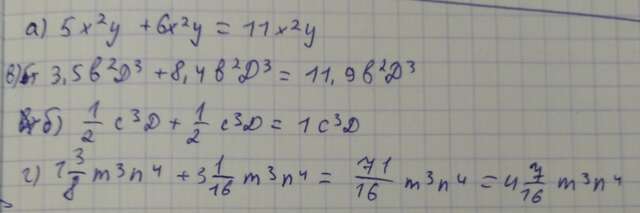 а) 5x²y + 6x²y = 11x²y
в) 3,5b²D³ + 8,4b²D³ = 11,9b²D³
б) 1/2 c³D + 1/2 c³D = 1c³D
г) 1 3/8 m³n⁴ + 3 1/16 m³n⁴ = 71/16 m³n⁴ = 4 7/16 m³n⁴